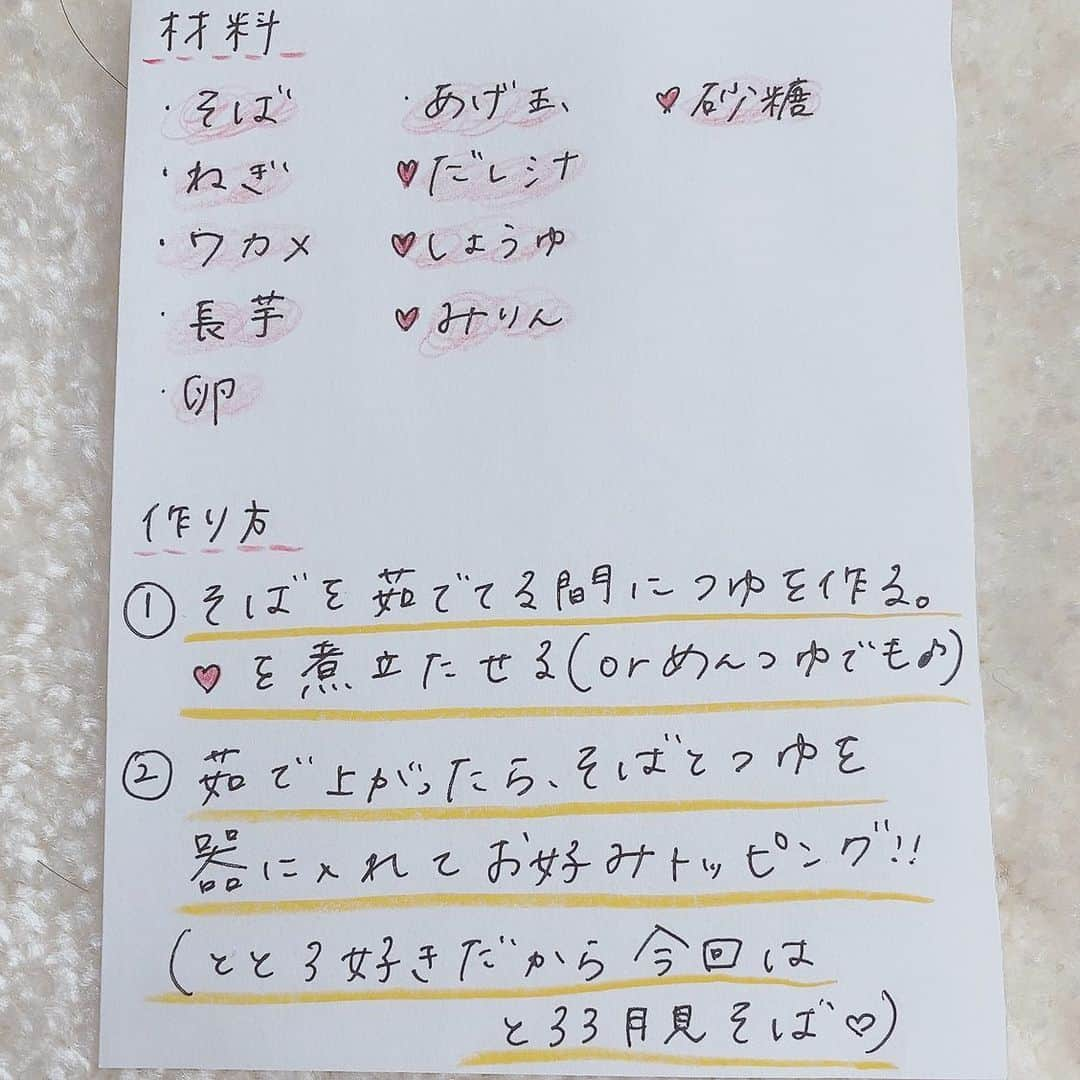 材料
・そば ・あげ玉 ♥砂糖
・ねぎ ♥だし汁
・ワカメ ♥しょうゆ
・長芋 ♥みりん
・卵
作り方
① そばを茹でてる間につゆを作る。
♥を煮立たせる(orめんつゆでも♪)
② 茹で上がったら、そばとつゆを
器に入れてお好みトッピング!!
(ととろ好きだから今回は
とろろ月見そば♡)